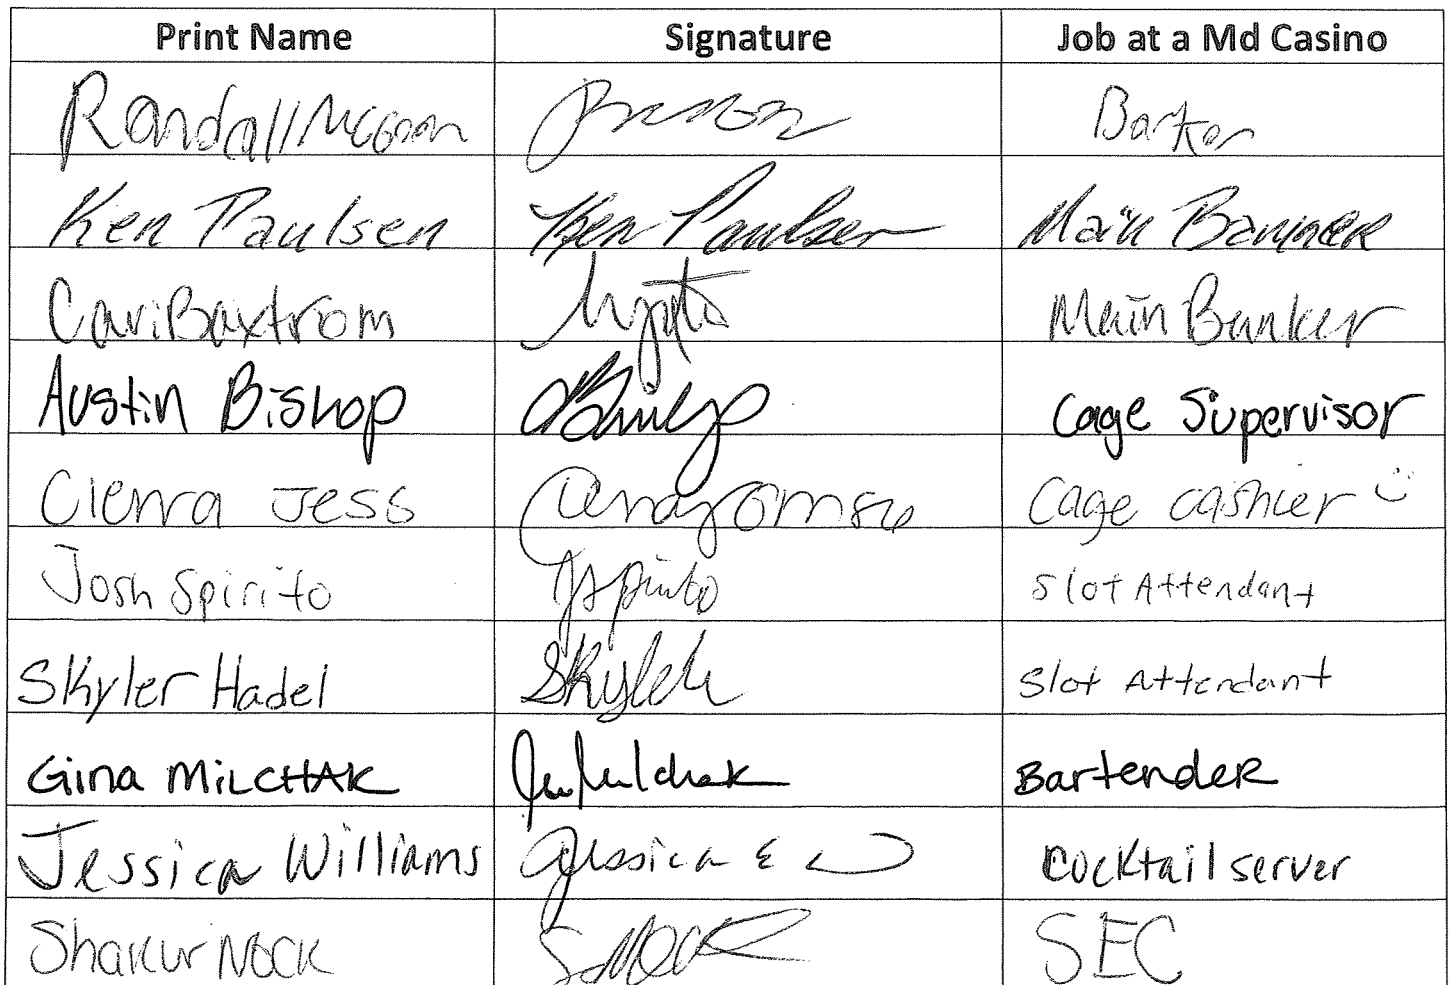 Print Name Signature Job at a Md Casino
Randall
Ken Paulsen Ken Paulsen Main Banker
Cari Baxtrom Main Banker
Austin Bishop Cage Supervisor
Cierra Jess Cage cashier
Josh Spirito JSpirito Slot Attendant
Skyler Hadel Slot Attendant
Gina MiLCHAK Bartender
Jessica Williams Jessica E W Cocktail server
Shakur Nock S Nock SEC